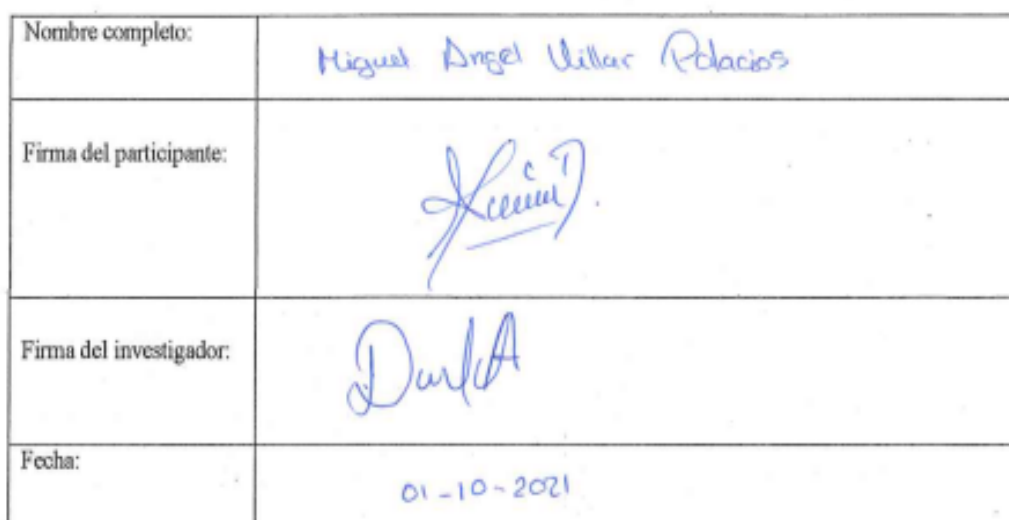 Nombre completo:
Miguel Angel Villar Palacios
Firma del participante:
Firma del investigador:
Fecha:
01-10-2021